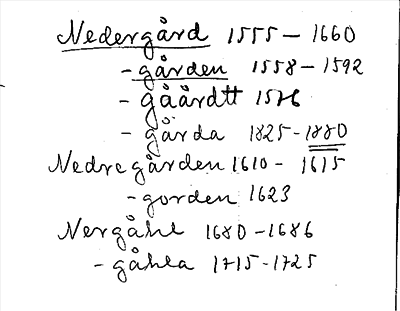 Nedergård 1555 – 1660
- gården 1558 – 1592
- gåårdtt 1576
- gärda 1825 - 1880
Nedregården 1610 - 1615
- gorden 1623
Nergåhl 1680 – 1686
- gåhla 1715 - 1725